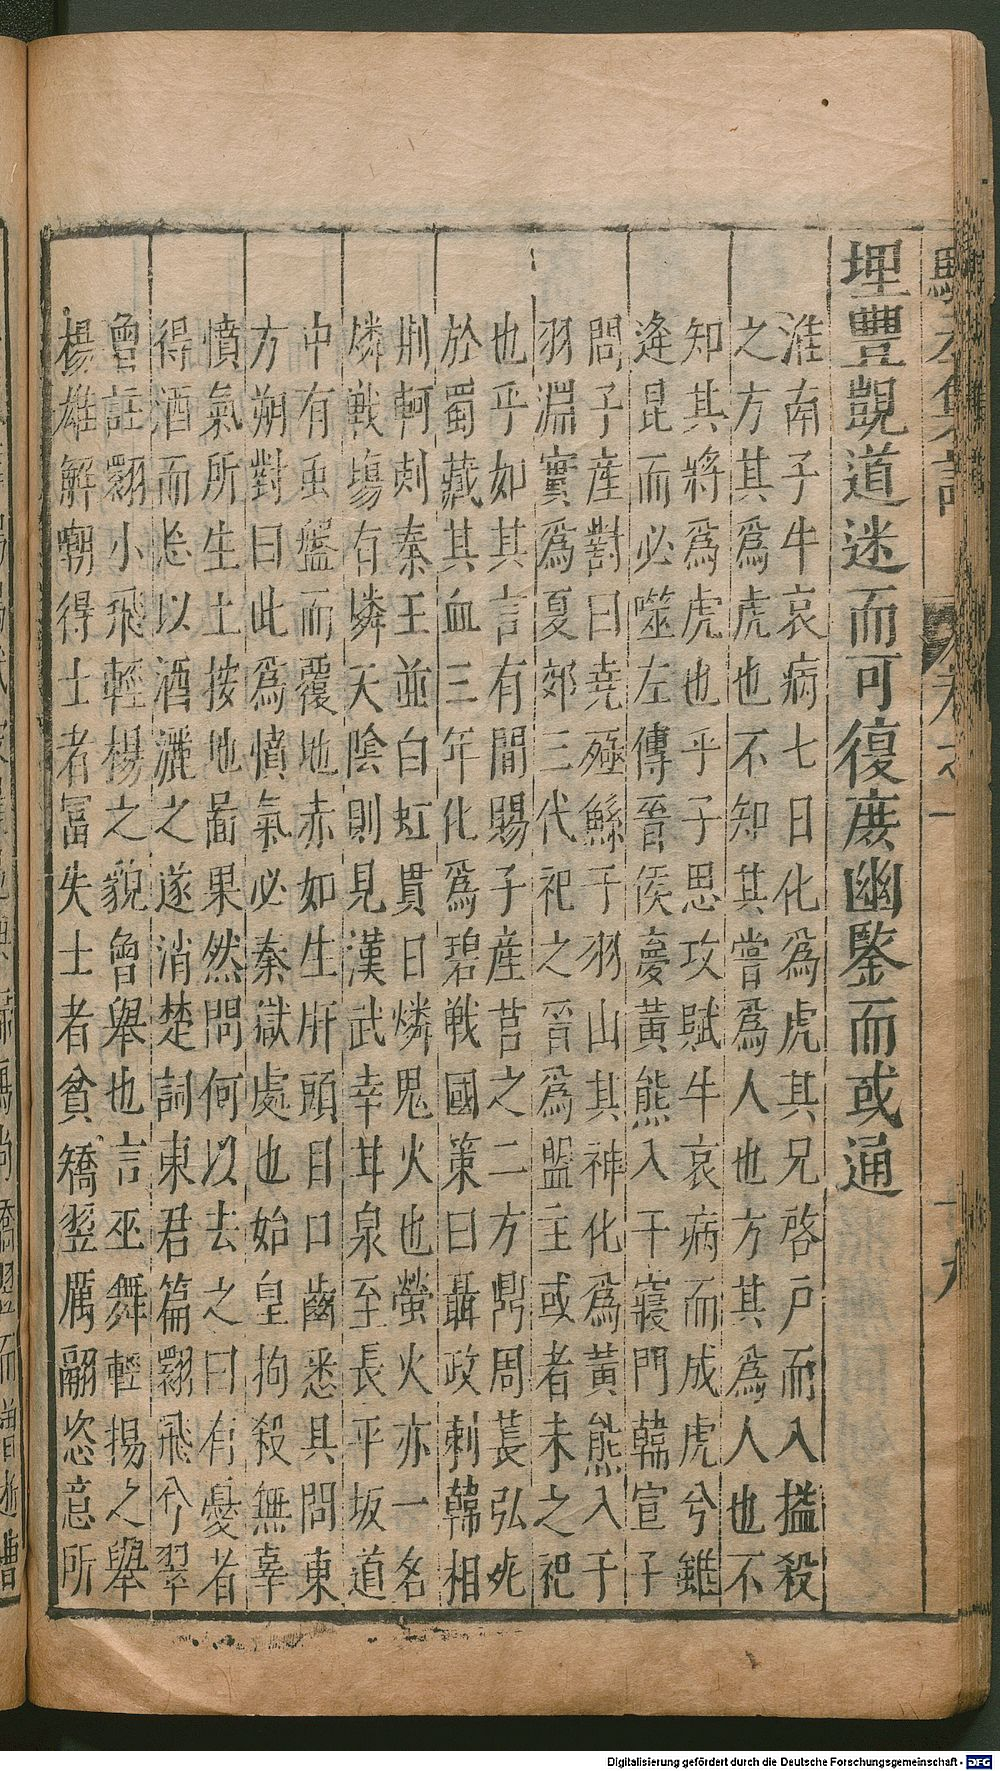 埋豐覬道迷而可復庶幽鑒而或通
淮南子牛哀病七日化為虎其兄啓戶而入搤殺
之方其為虎也不知其嘗為人也方其為人也不
知其將為虎也乎子思攻賦牛哀病而成虎兮雖
逄昆而必噬左傳晉侯夢黃熊入于寢門韓宣子
問子產對曰堯殛鯀于羽山其神化為黃熊入于
羽淵實為夏郊三代祀之晉為盟主或者未之祀
也乎如其言有間賜子產莒之二方鼎周萇弘死
於蜀藏其血三年化為碧戰國策曰聶政刺韓相
荊軻刺秦王並白虹貫日燐鬼火也螢火亦一名
燐戰塲有燐天陰則見漢武幸甘泉至長平坂道
中有虫盤而覆地赤如生肝頭目口齒悉具問東
方朔對曰此為憤氣必秦獄處也始皇拘殺無辜
憤氣所生土按地啚果然問何以去之曰有憂者
得酒而忘以酒灑之遂消楚詞東君篇翾飛兮翠
曾註翾小飛輕楊之貌曾舉也言巫舞輕揚之舉
楊雄解嘲得士者冨失士者貧矯翌厲翮恣意所
卷之一
十九
Digitalisierung gefördert durch die Deutsche Forschungsgemeinschaft - DFG